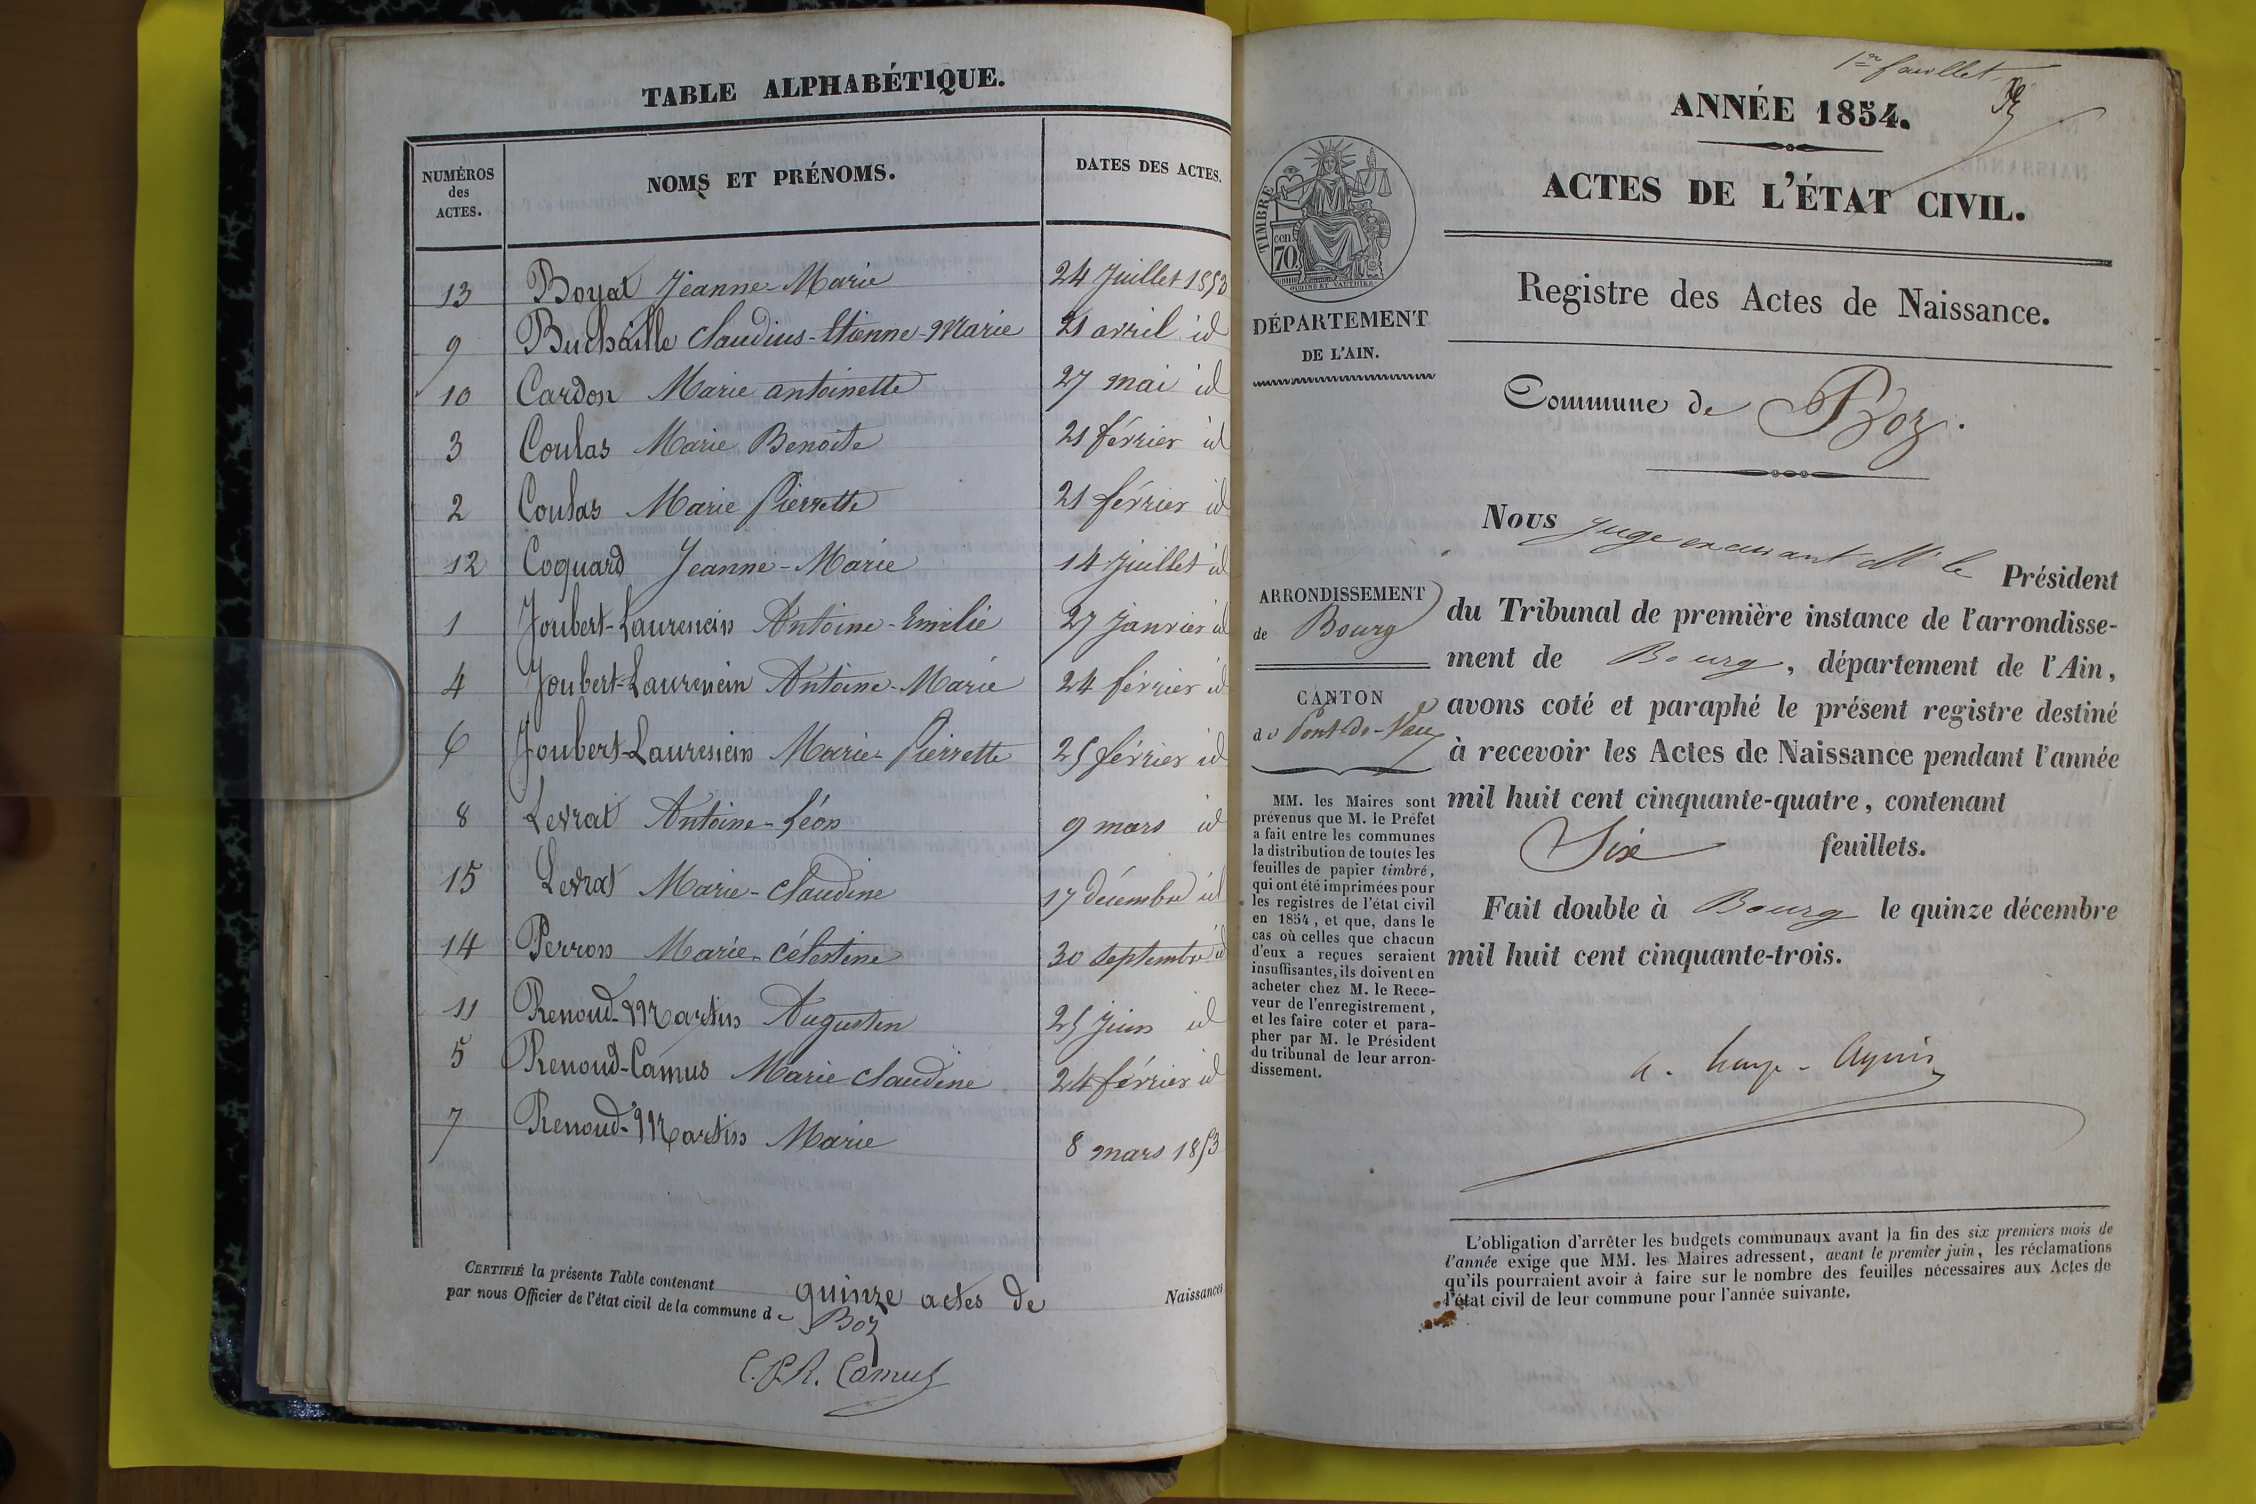 TABLE ALPHABÉTIQUE.
NUMÉROS des ACTES. NOMS ET PRÉNOMS. DATES DES ACTES.
13 Boyat Jeanne-Marie 24 Juillet 1853
9 Buchaille Claudius-Etienne-Marie 21 avril id
10 Cardon Marie antoinette 27 mai id
3 Coulas Marie Benoite 21 février id
2 Coulas Marie Pierrette 21 février id
12 Coquard Jeanne-Marie 14 Juillet id
1 Joubert-Laurencin Antoine-Emilie 27 Janvier id
4 Joubert-Laurencin Antoine-Marie 24 février id
6 Joubert-Laurencin Marie-Pierrette 25 février id
8 Levrat Antoine-Léon 9 mars id
15 Levrat Marie-Claudine 17 décembre id
14 Perron Marie-Célestine 30 septembre id
11 Renoud-Martin Augustin 25 Juin id
5 Renoud-Camus Marie Claudine 24 février id
7 Renoud-Martin Marie 8 mars 1853
CERTIFIÉ la présente Table contenant quinze actes de Naissances
par nous Officier de l'état civil de la commune de Boz
C.P.R. Camus
1er feuillet
ANNÉE 1854.
ACTES DE L'ÉTAT CIVIL.
TIMBRE
cen. 70
DÉPARTEMENT
DE L'AIN.
Registre des Actes de Naissance.
Commune de Boz.
ARRONDISSEMENT
de Bourg
CANTON
de Pont-de-Vaux
MM. les Maires sont
prévenus que M. le Préfet
a fait entre les communes
la distribution de toutes les
feuilles de papier timbré,
qui ont été imprimées pour
les registres de l'état civil
en 1854, et que, dans le
cas où celles que chacun
d'eux a reçues seraient
insuffisantes, ils doivent en
acheter chez M. le Rece-
veur de l'enregistrement,
et les faire coter et para-
pher par M. le Président
du tribunal de leur arron-
dissement.
Nous Juge exerçant Mr le Président
du Tribunal de première instance de l'arrondisse-
ment de Bourg, département de l'Ain,
avons coté et paraphé le présent registre destiné
à recevoir les Actes de Naissance pendant l'année
mil huit cent cinquante-quatre, contenant
Six feuillets.
Fait double à Bourg le quinze décembre
mil huit cent cinquante-trois.
L'obligation d'arrêter les budgets communaux avant la fin des six premiers mois de
l'année exige que MM. les Maires adressent, avant le premier juin, les réclamations
qu'ils pourraient avoir à faire sur le nombre des feuilles nécessaires aux Actes de
l'état civil de leur commune pour l'année suivante.